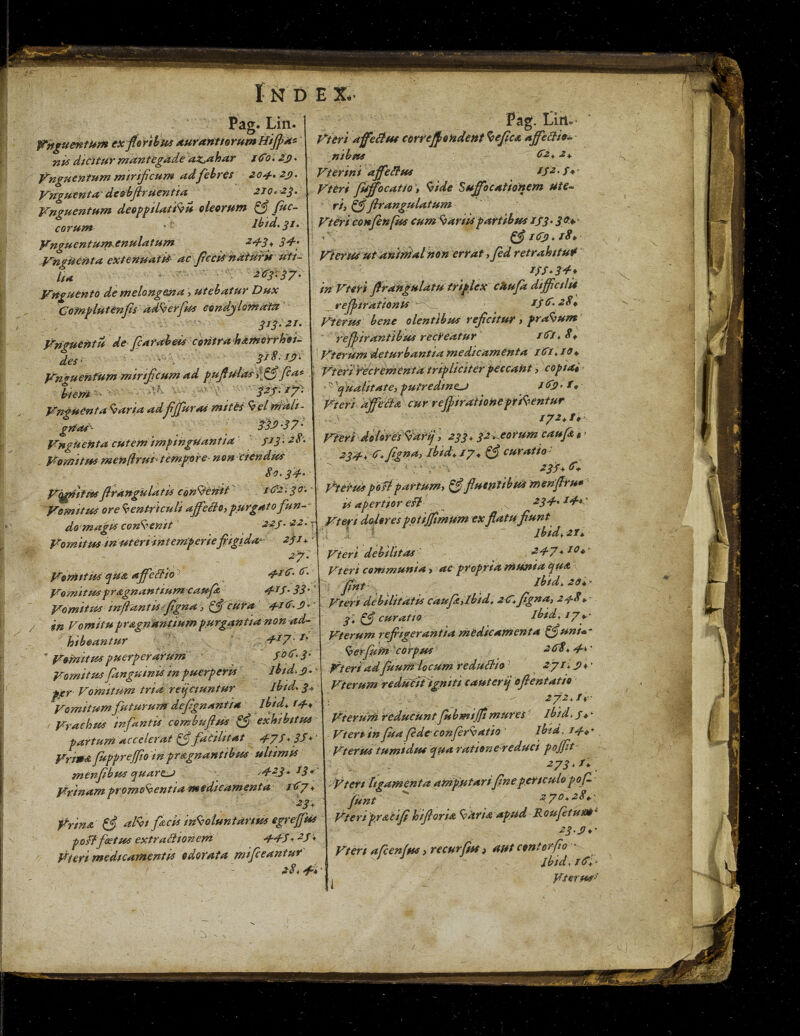 INDEX.
Pag. Lin.
Vnguentum ex floribus aurantiorum Hispa-
nis dicitur mantegade azahar 160. 29.
Vnguentum mirificum ad febres 204. 29.
Vnguenta deobstruentia 210. 23.
Vnguentum deoppilativũ oleorum & suc-
corum Ibid. 31.
Vnguentum enulatum 243. 34.
Vnguenta extenuatis ac siccis naturis uti-
lia 263. 37.
Vnguento de melongena, utebatur Dux
Complutensis adversus condylomata
313. 21.
Vnguentũ de scarabeis contra hæmorrhoi-
des 318. 19.
Vnguentum mirificum ad pustulas, & sca-
biem 325. 17.
Vnguenta varia ad fissuras mites vel mali-
gnas 339. 37.
Vnguenta cutem impinguantia 513. 28.
Vomitus menstrui tempore non ciendus
80. 34.
Vomitus strangulatis convenit 162. 30.
Vomitus ore ventriculi affecto, purgato fun-
do magis convenit 225. 22.
Vomitus in uteri intemperie frigida 251.
27.
Vomitus quæ affectio 416. 6.
Vomitus prægnantium causæ 415. 33.
Vomitus instantis signa, & cura 416. 9.
in Vomitu prægnantium purgantia non ad-
hibeantur 417. 1.
Vomitus puerperarum 506. 3.
Vomitus sanguinis in puerperis Ibid. 9.
per Vomitum tria rejciuntur Ibid. 3.
Vomitum futurum designantia Ibid. 14.
Vrachus infantis combustus & exhibitus
partum accelerat & facilitat 475. 35.
Vrinæ suppressio in prægnantibus ultimis
mensibus quare 423. 13.
Vrinam promoventia medicamenta 167.
23.
Vrinæ & alvi fæcis involuntarius egressus
post fœtus extractionem 445. 25.
Vteri medicamentis odorata misceantur
28. 4.
Pag. Lin.
Vteri affectus correspondent vesicæ affectio-
nibus 62. 2.
Vterini affectus 152. 5.
Vteri suffocatio, vide Suffocationem ute-
ri, & strangulatum
Vteri consensus cum variis partibus 153. 30.
& 169. 18.
Vterus ut animal non errat, sed retrahitur
155. 34.
in Vteri strangulatu triplex causa difficilis
respirationis 156. 28.
Vterus bene olentibus reficitur, pravum
respirantibus recreatur 161. 8.
Vterum deturbantia medicamenta 161. 10.
Vteri recrementa tripliciter peccant, copia,
qualitate, putredine 169. 1.
Vteri affecta cur respiratione priventur
172. 1.
Vteri dolores varij, 233. 32. eorum causæ,
234. 6. signa, Ibid. 17. & curatio
235. 6.
Vterus post partum, & fluentibus menstru-
is apertior est 234. 14.
Vteri dolores potissimum ex flatu fiunt
Ibid. 21.
Vteri debilitas 247. 10.
Vteri communia, ac propria munia quæ
sint Ibid. 20.
Vteri debilitatis causæ, Ibid. 26. signa, 248.
3. & curatio Ibid. 17.
Vterum refrigerantia medicamenta & uni-
versum corpus 268. 4.
Vteri ad suum locum reductio 271. 9.
Vterum reducit igniti cauterij ostentatio
272. 1.
Vterum reducunt submissi mures Ibid. 5.
Vteri in sua sede conservatio Ibid. 14.
Vterus tumidus qua ratione reduci possit
273. 1.
Vteri ligamenta amputari sine periculo pos-
sunt 270. 28.
Vteri præcisi historiæ variæ apud Rousetum
23. 9.
Vteri ascensus, recursus, aut contorsio
Ibid. 16.
Vterus